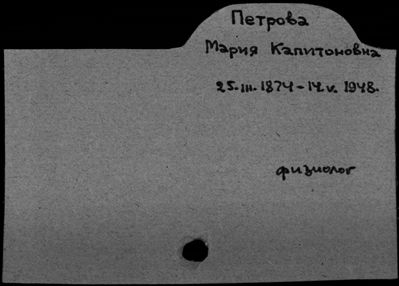 Петрова
Мария Капитоновна
25.III.1874-14.V.1948.
физиолог